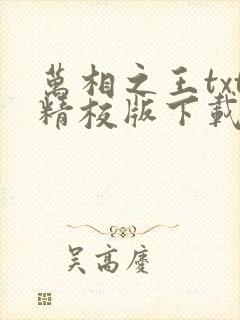 萬相之王txt
精校版下載
吴高慶